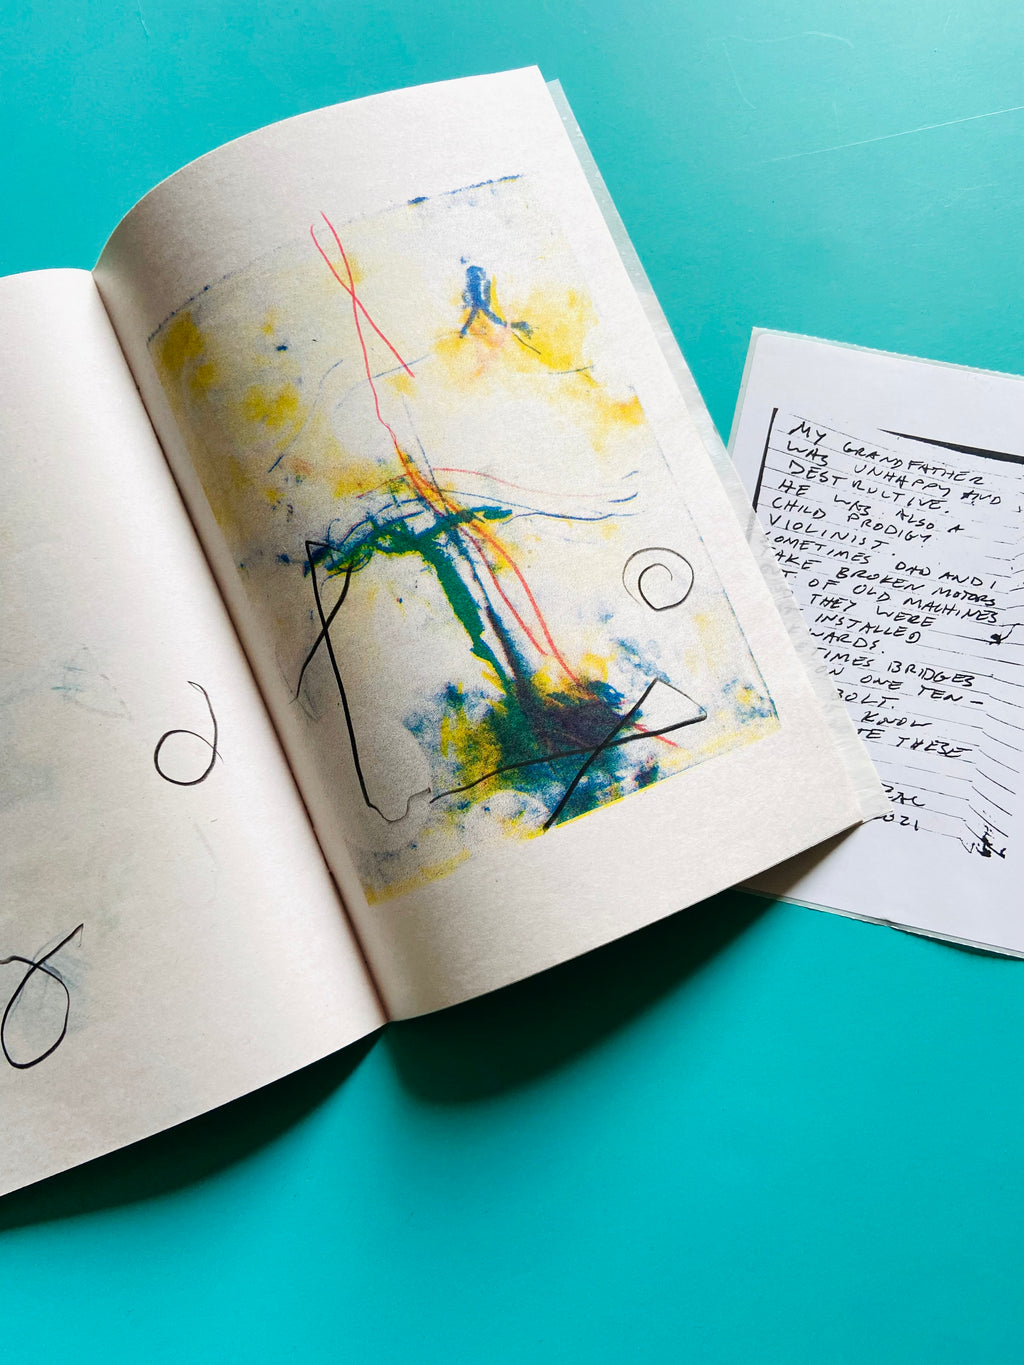 MY GRANDFATHER
WAS UNHAPPY AND
DESTRUCTIVE.
HE WAS ALSO A
CHILD PRODIGY
VIOLINIST.
OMETIMES DAD AND I
AKE BROKEN MOTORS
T OF OLD MACHINES
THEY WERE
INSTALLED
WARDS.
TIMES BRIDGES
N ONE TEN-
BOLT.
KNOW
TE THESE
021